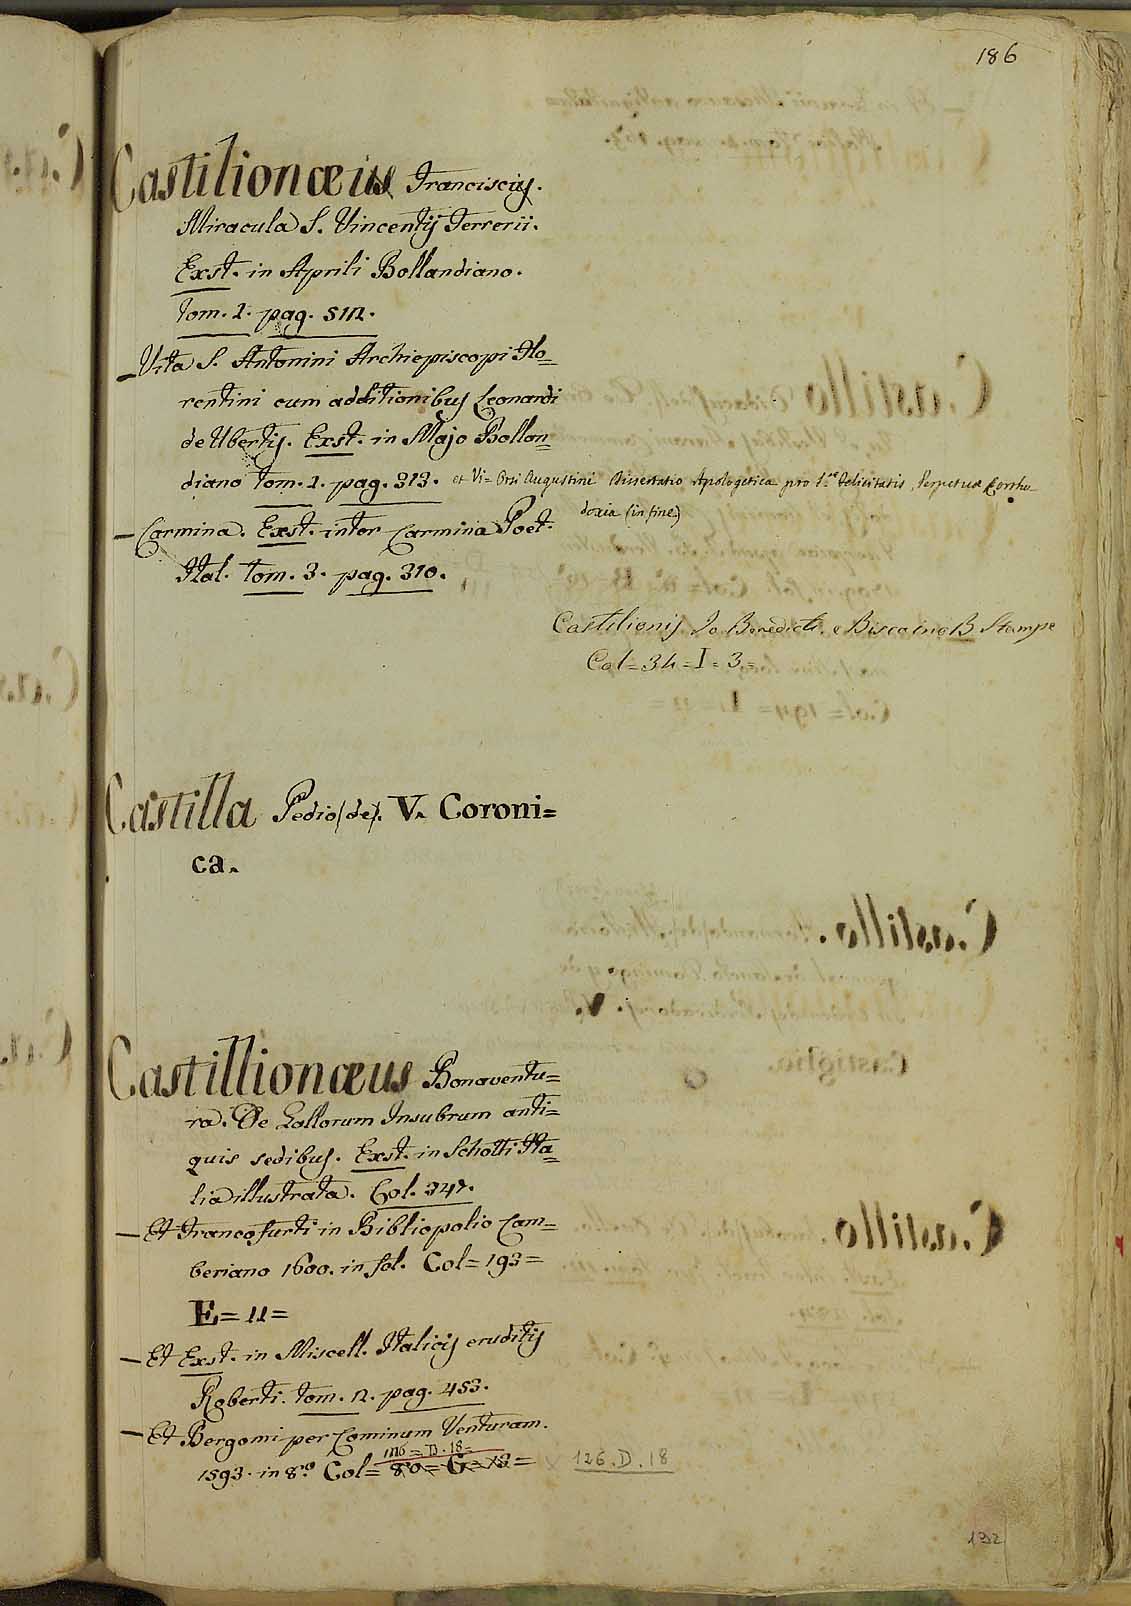 186
Castilionæus Franciscus.
Miracula S. Vincentij Ferrerii.
Exst. in Aprili Bollandiano.
tom. 1. pag. 512.
— Vita S. Antonini Archiepiscopi Flo=
rentini cum additionibus Leonardi
de Ubertis. Exst. in Majo Bollan=
diano tom. 1. pag. 313. et Vi= Orsi Augustini Dissertatio Apologetica pro S.ar Felicitatis, Perpetuæ Ortho=
doxia (in fine)
— Carmina. Exst. inter Carmina Poet.
Ital. tom. 3. pag. 310.
Castilionis Jo Benedicti. e Biscaino B Stampe
Col = 34 = I = 3 =
Castilla Pedro (de). V. Coroni=
ca.
Castillionæus Bonaventu=
ra. De Gallorum Insubrum anti=
quis sedibus. Exst. in Schotti Ita=
lia illustrata. Col. 347.
— Et Francofurti in Bibliopolio Cam=
beriano 1600. in fol. Col = 193 =
E = 11 =
— Et Exst. in Miscell. Italicis eruditis
Roberti. tom. 2. pag. 453.
— Et Bergomi per Cominum Venturam.
126 = D. 18 =
1593. in 8.º Col = 80 = G = 13 = 126. D. 18
132